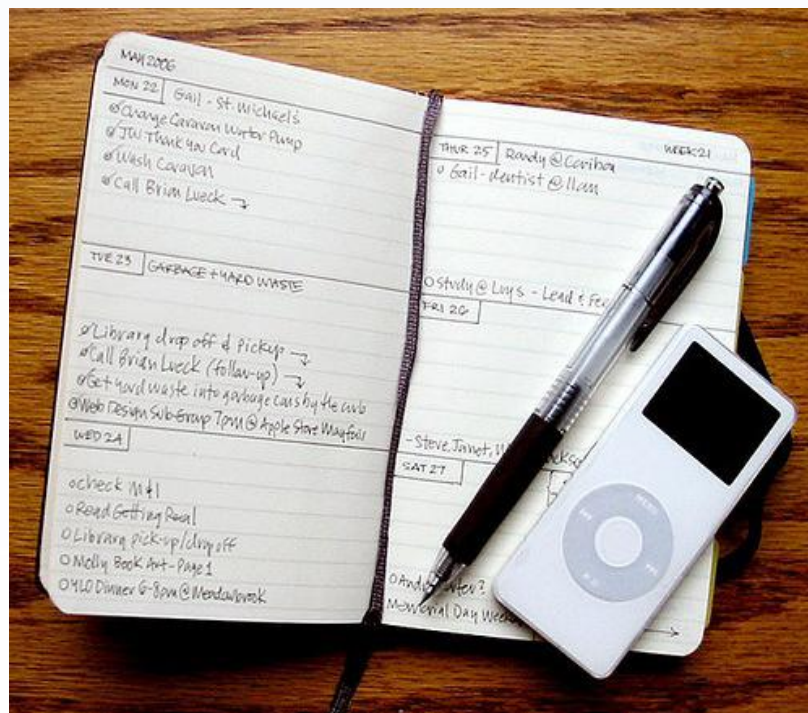 MAY 2006
MON 22 Gail - St. Michael's
Change Caravan Water Pump
JW Thank You Card
Wash Caravan
Call Brian Lueck →
TUE 23 GARBAGE + YARD WASTE
Library drop off & pickup →
Call Brian Lueck (follow-up) →
Get yard waste into garbage cans by the curb
Web Design Sub-Group 7pm @ Apple Store Mayfair
WED 24
check M&I
Read Getting Real
Library pick-up/drop off
Molly Book Art - Page 1
YLO Dinner 6-8pm @ Meadowbrook
WEEK 21
THUR 25 Randy @ Caribou
Gail - dentist @ 11am
Study @ Luy's - Lead &
FRI 26
- Steve, Janet,
SAT 27
Memorial Day
MENU